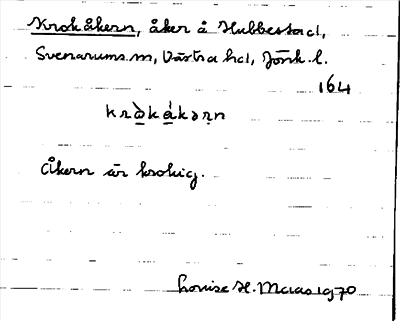 Krokåkern, åker å Hubbestad,
Svenarums sn, Västra hd, Jönk. l.
164
kròkákəṛn
Åkern är krokig.
Louise H. Maras 1970